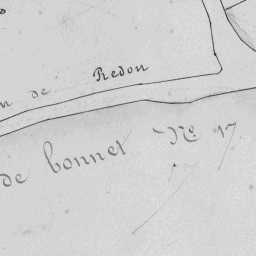 de Redon
de bonnet N.º 17